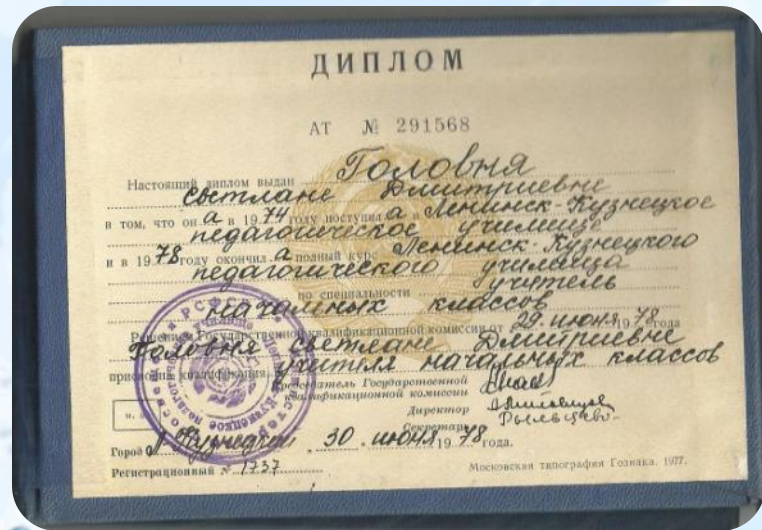 ДИПЛОМ
АТ № 291568
Настоящий диплом выдан Головня
Светлане Дмитриевне
в том, что она в 1974 году поступила в Ленинск-Кузнецкое
педагогическое училище
и в 1978 году окончила полный курс Ленинск-Кузнецкого
педагогического училища
по специальности учитель
начальных классов
Решением Государственной квалификационной комиссии от 29 июня 1978 года
Головня Светлане Дмитриевне
присвоена квалификация учителя начальных классов
Председатель Государственной
квалификационной комиссии
Директор
Секретарь
Город Л-Кузнецкий 30 июня 1978 года.
Регистрационный № 1737
Московская типография Гознака. 1977.